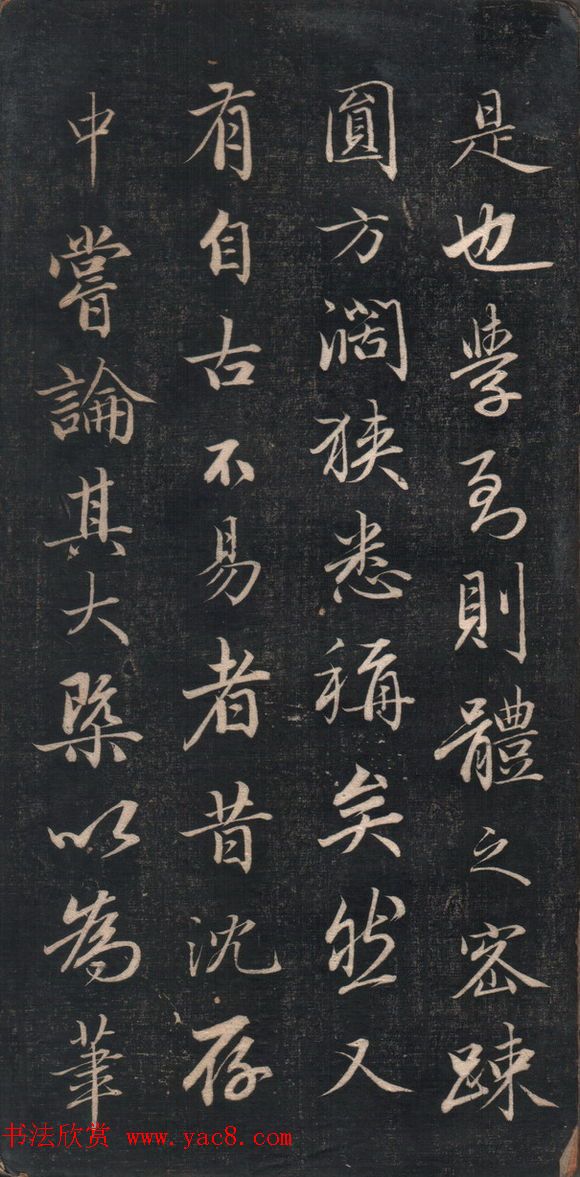 是也學到則體之密踈
圓方濶狹悉稱矣然又
有自古不易者昔沈存
中嘗論其大槩以為筆
书法欣赏 www.yac8.com